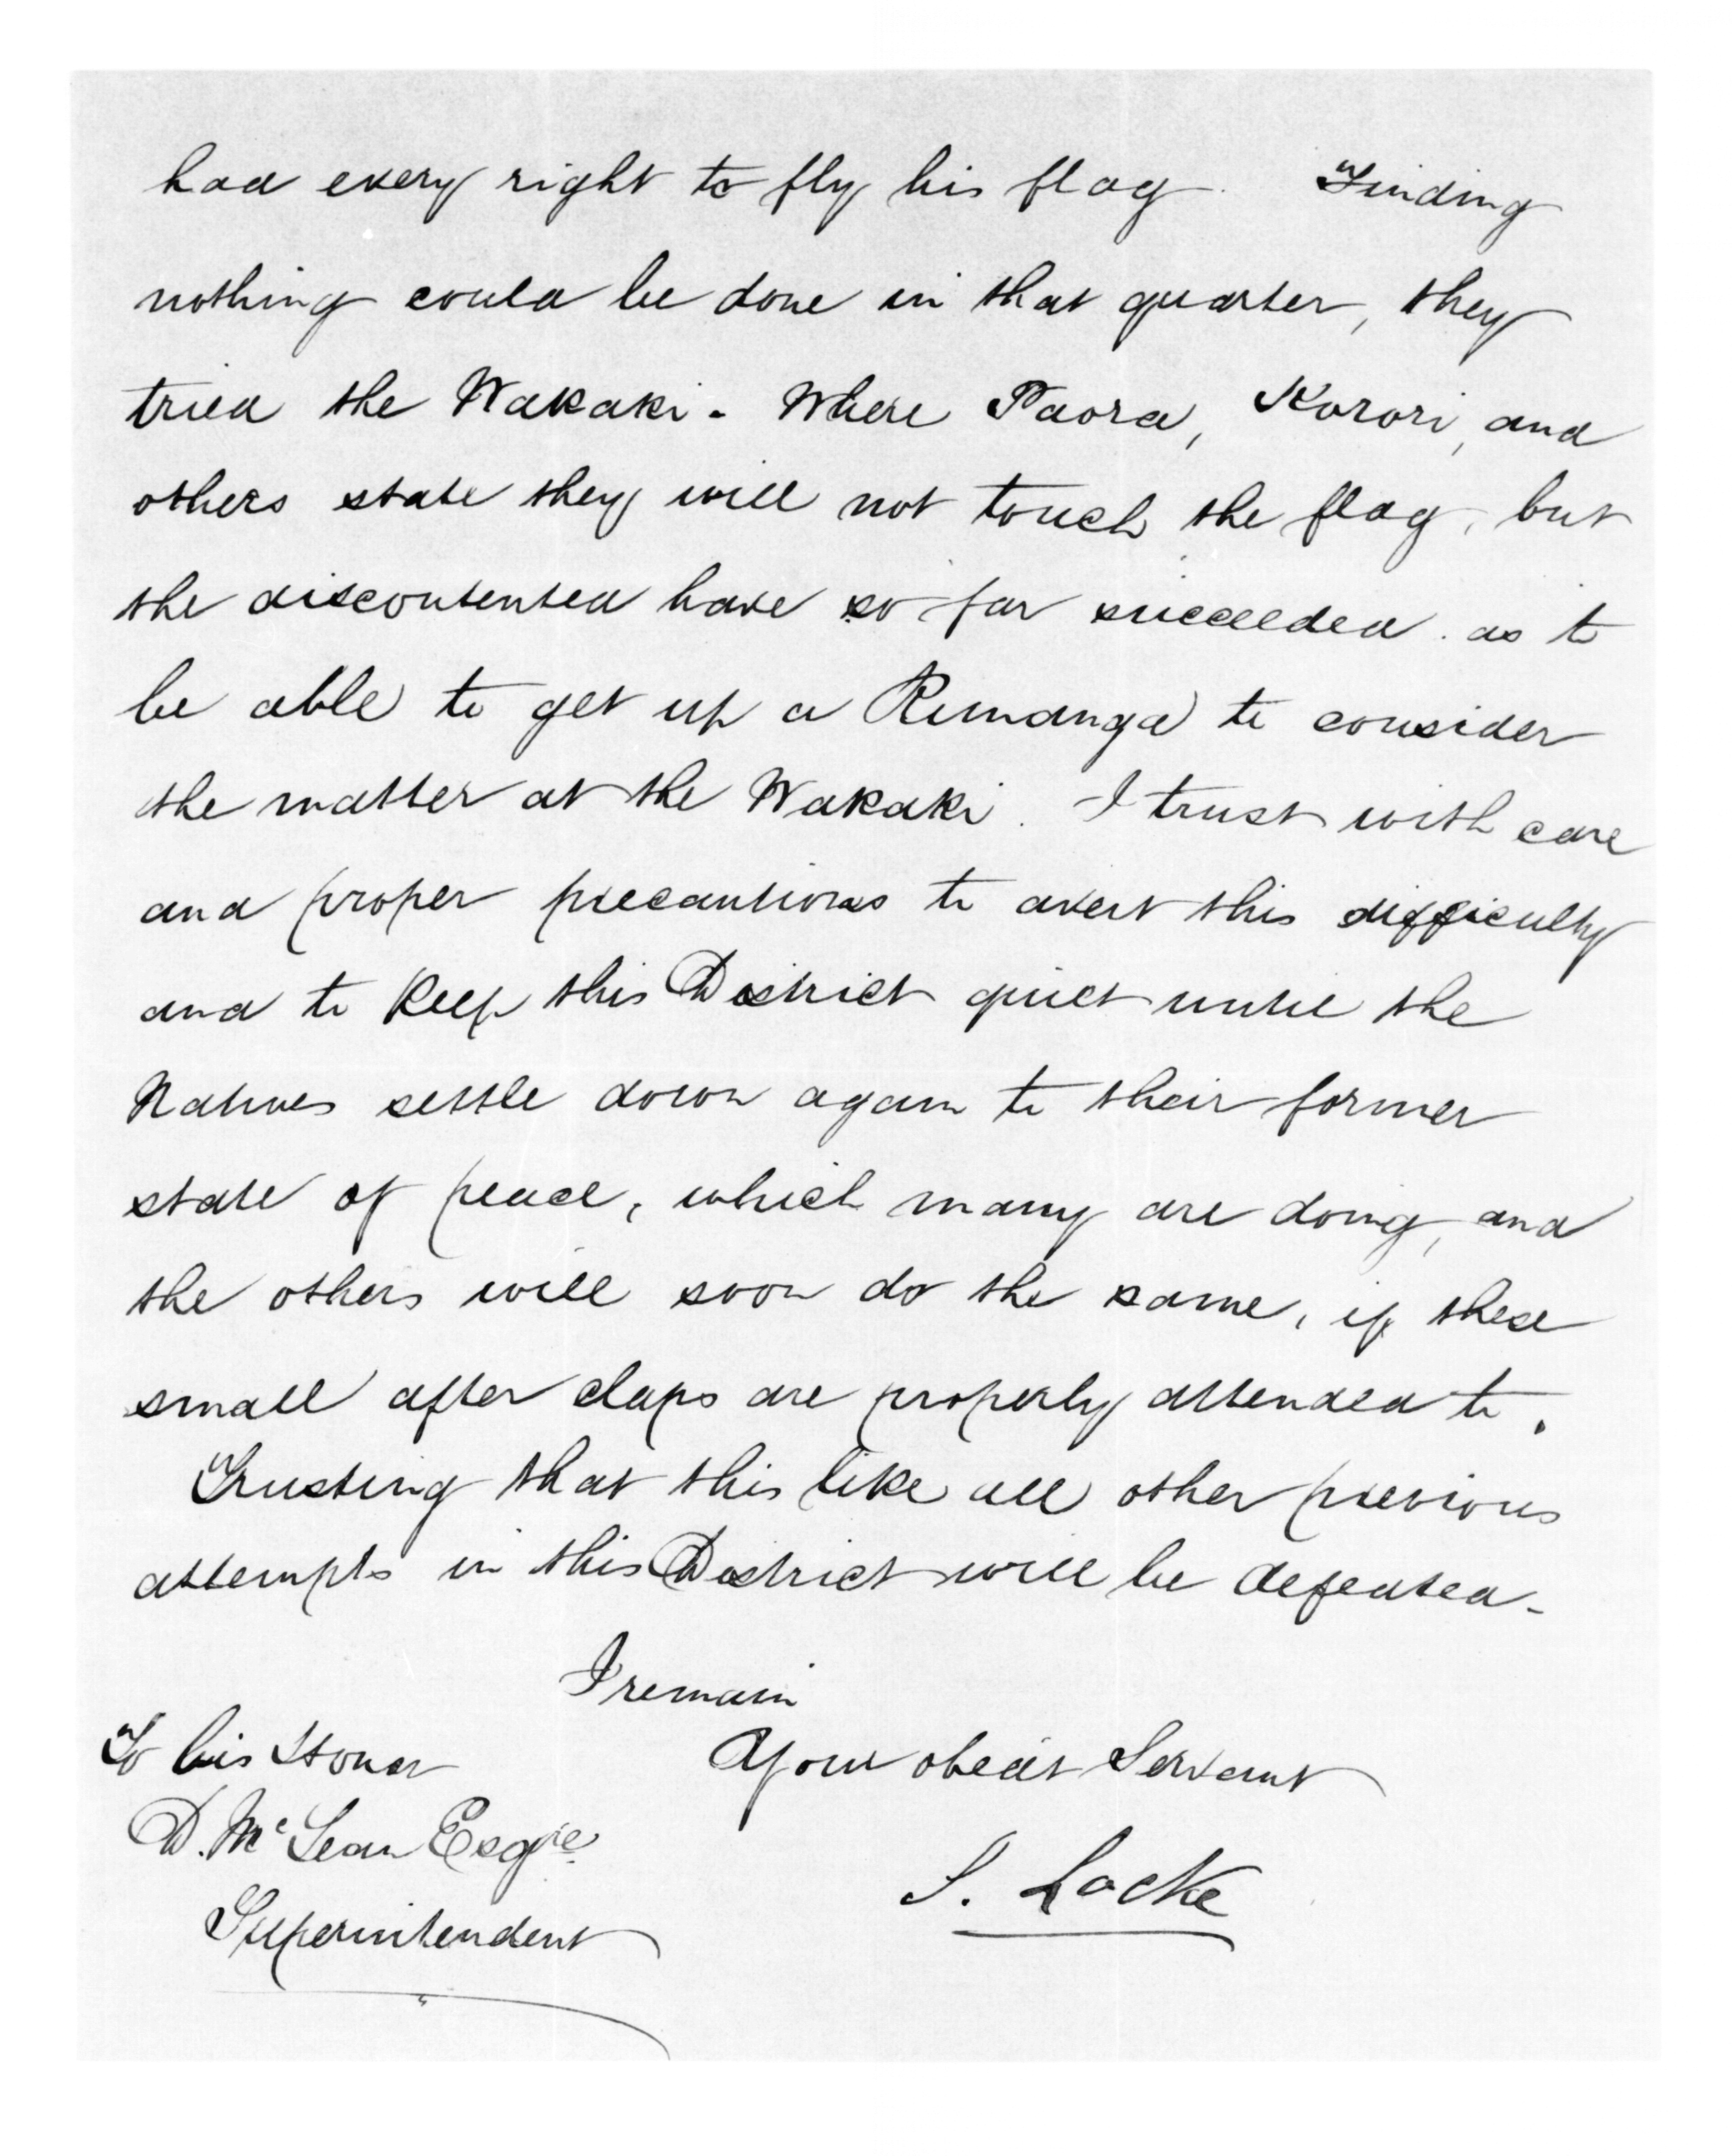 had every right to fly his flag. Finding
nothing could be done in that quarter, they
tried the Wakaki. Where Paora, Korori, and
others state they will not touch the flag, but
the discontented have so far succeeded. as to
be able to get up a Runanga to consider
the matter at the Wakaki. I trust with care
and proper precautions to avert this difficulty
and to keep this District quiet until the
Natives settle down again to their former
state of peace, which many are doing, and
the others will soon do the same, if these
small after claps are properly attended to.
Trusting that this like all other previous
attempts in this District will be defeated.
I remain
Your obedt Servant
S. Locke
To his Honor
D. McLean Esqre
Superintendent